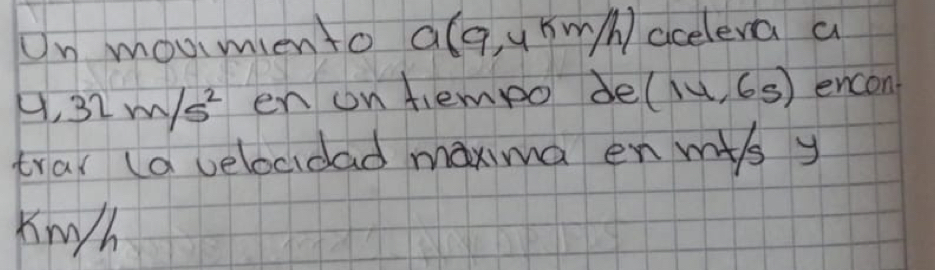 Un movimiento a(9,4 km/h) acelera a
4,32 m/s² en un tiempo de (14,6s) encon-
trar la velocidad máxima en mt/s y
km/h